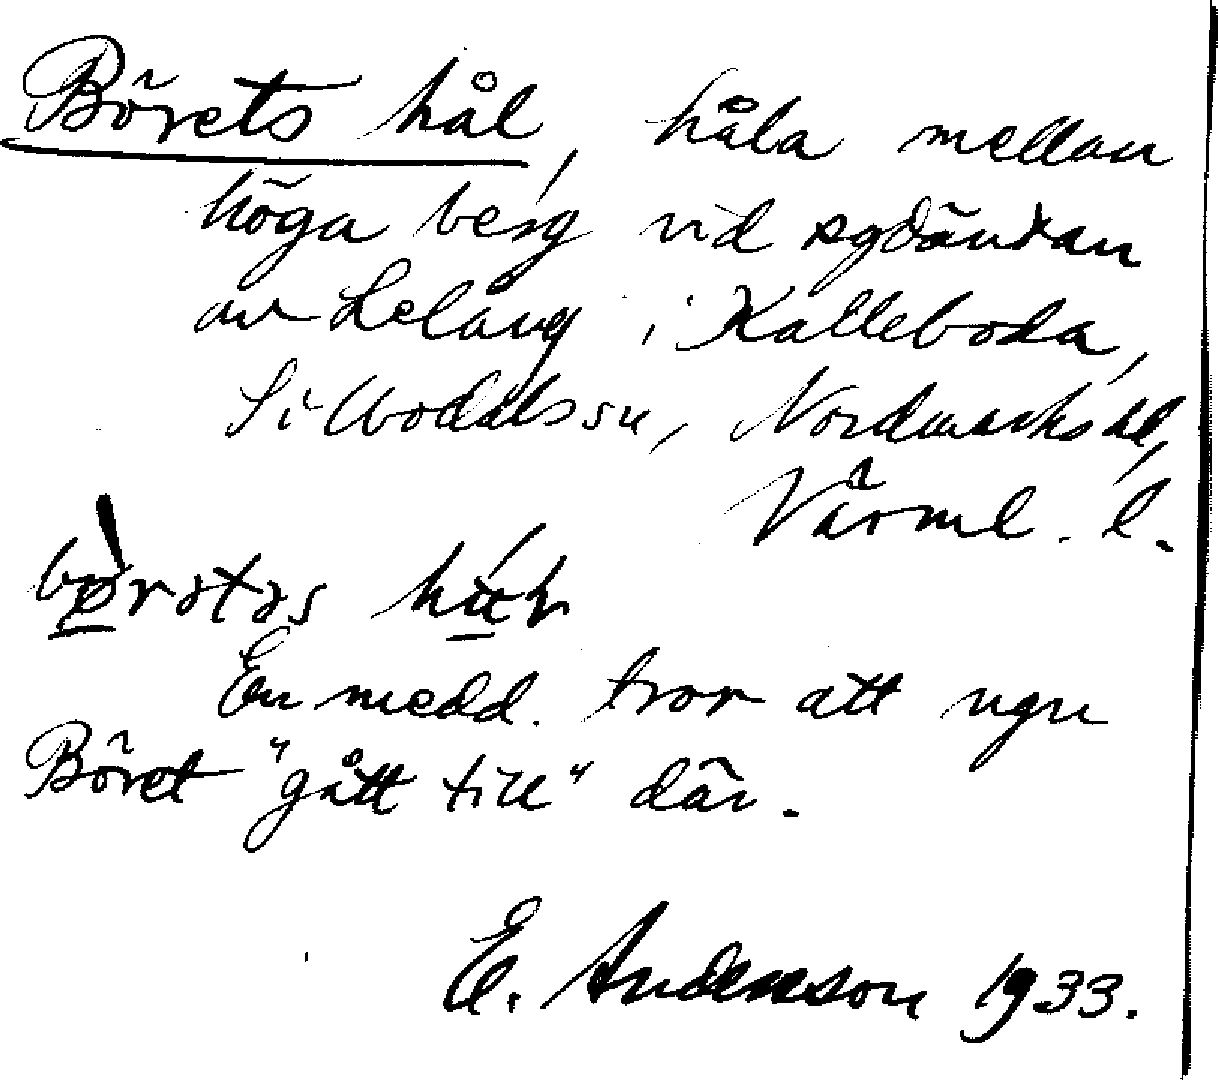 Börets hål, håla mellan
höga berg vid sydändan
av Lelång i Kalleboda,
Silbodals sn, Nordmarks hd,
Värml. l.
En medd. tror att ngn
Böret "gått till" där.
E. Anderson 1933.